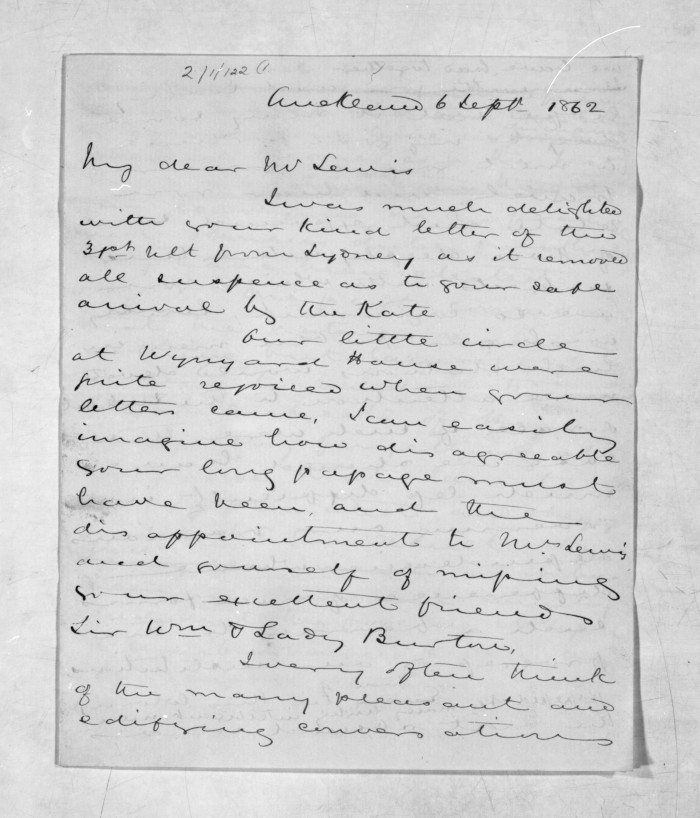 2/11/122 a
Auckland 6 Septr 1862
My dear Mr Lewis
I was much delighted
with your kind letter of the
31st ult from Sydney as it removed
all suspence as to your safe
arrival by the Kate
Our little circle
at Wynyard House were
quite rejoiced when your
letters came, I can easily
imagine how disagreeable
your long passage must
have been, and the
disappointment to Mrs Lewis
and yourself of missing
your excellent friends
Sir Wm & Lady Burton,
I very often think
of the many pleasant and
edifying conversations